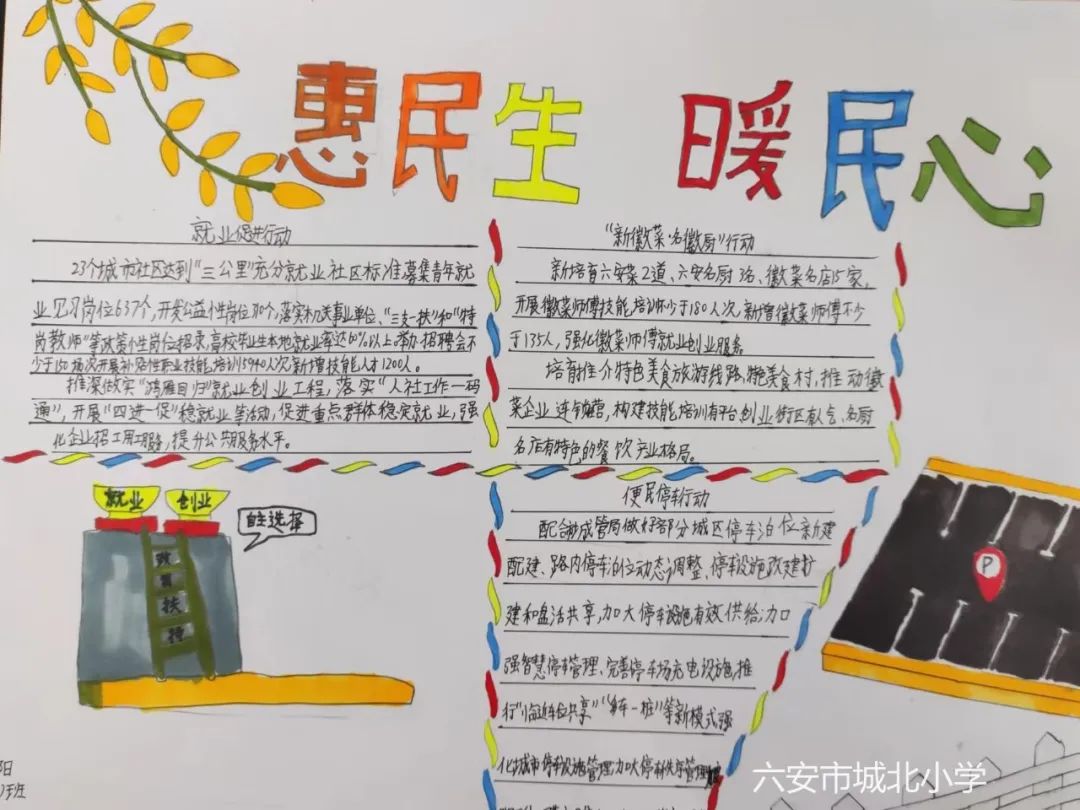 惠民生 暖民心
就业促进行动
23个城市社区达到"三公里"充分就业社区标准募集青年就
业见习岗位637个,开发公益性岗位710个,落实机关事业单位、"三支一扶"和"特
岗教师"等政策性岗位招录,高校毕业生本地就业率达60%以上。举办招聘会不
少于150场次开展补贴性职业技能培训15940人次新增技能人才1200人。
推深做实"鸿雁回归"就业创业工程,落实"人社工作一码
通",开展"四进一促"稳就业等活动,促进重点群体稳定就业,强
化企业招工用工服务,提升公共服务水平。
"新徽菜·名徽厨"行动
新培育六安菜2道、六安名厨3名、徽菜名店15家,
开展徽菜师傅技能培训不少于180人次,新增徽菜师傅不少
于135人,强化徽菜师傅就业创业服务。
培育推介特色美食旅游线路,特色美食村,推动徽
菜企业连锁经营,构建技能培训有平台,创业街区有人气、名厨
名店有特色的餐饮产业格局。
就业
创业
自主选择
政
策
扶
持
便民停车行动
配合城管局做好部分城区停车泊位新建
配建、路内停车泊位动态调整、停车设施改建扩
建和盘活共享,加大停车设施有效供给;加
强智慧停车管理、完善停车场充电设施,推
行"临近车位共享""多车一桩"等新模式强
化城市停车设施管理加大停车秩序管理
P
阳
班
六安市城北小学